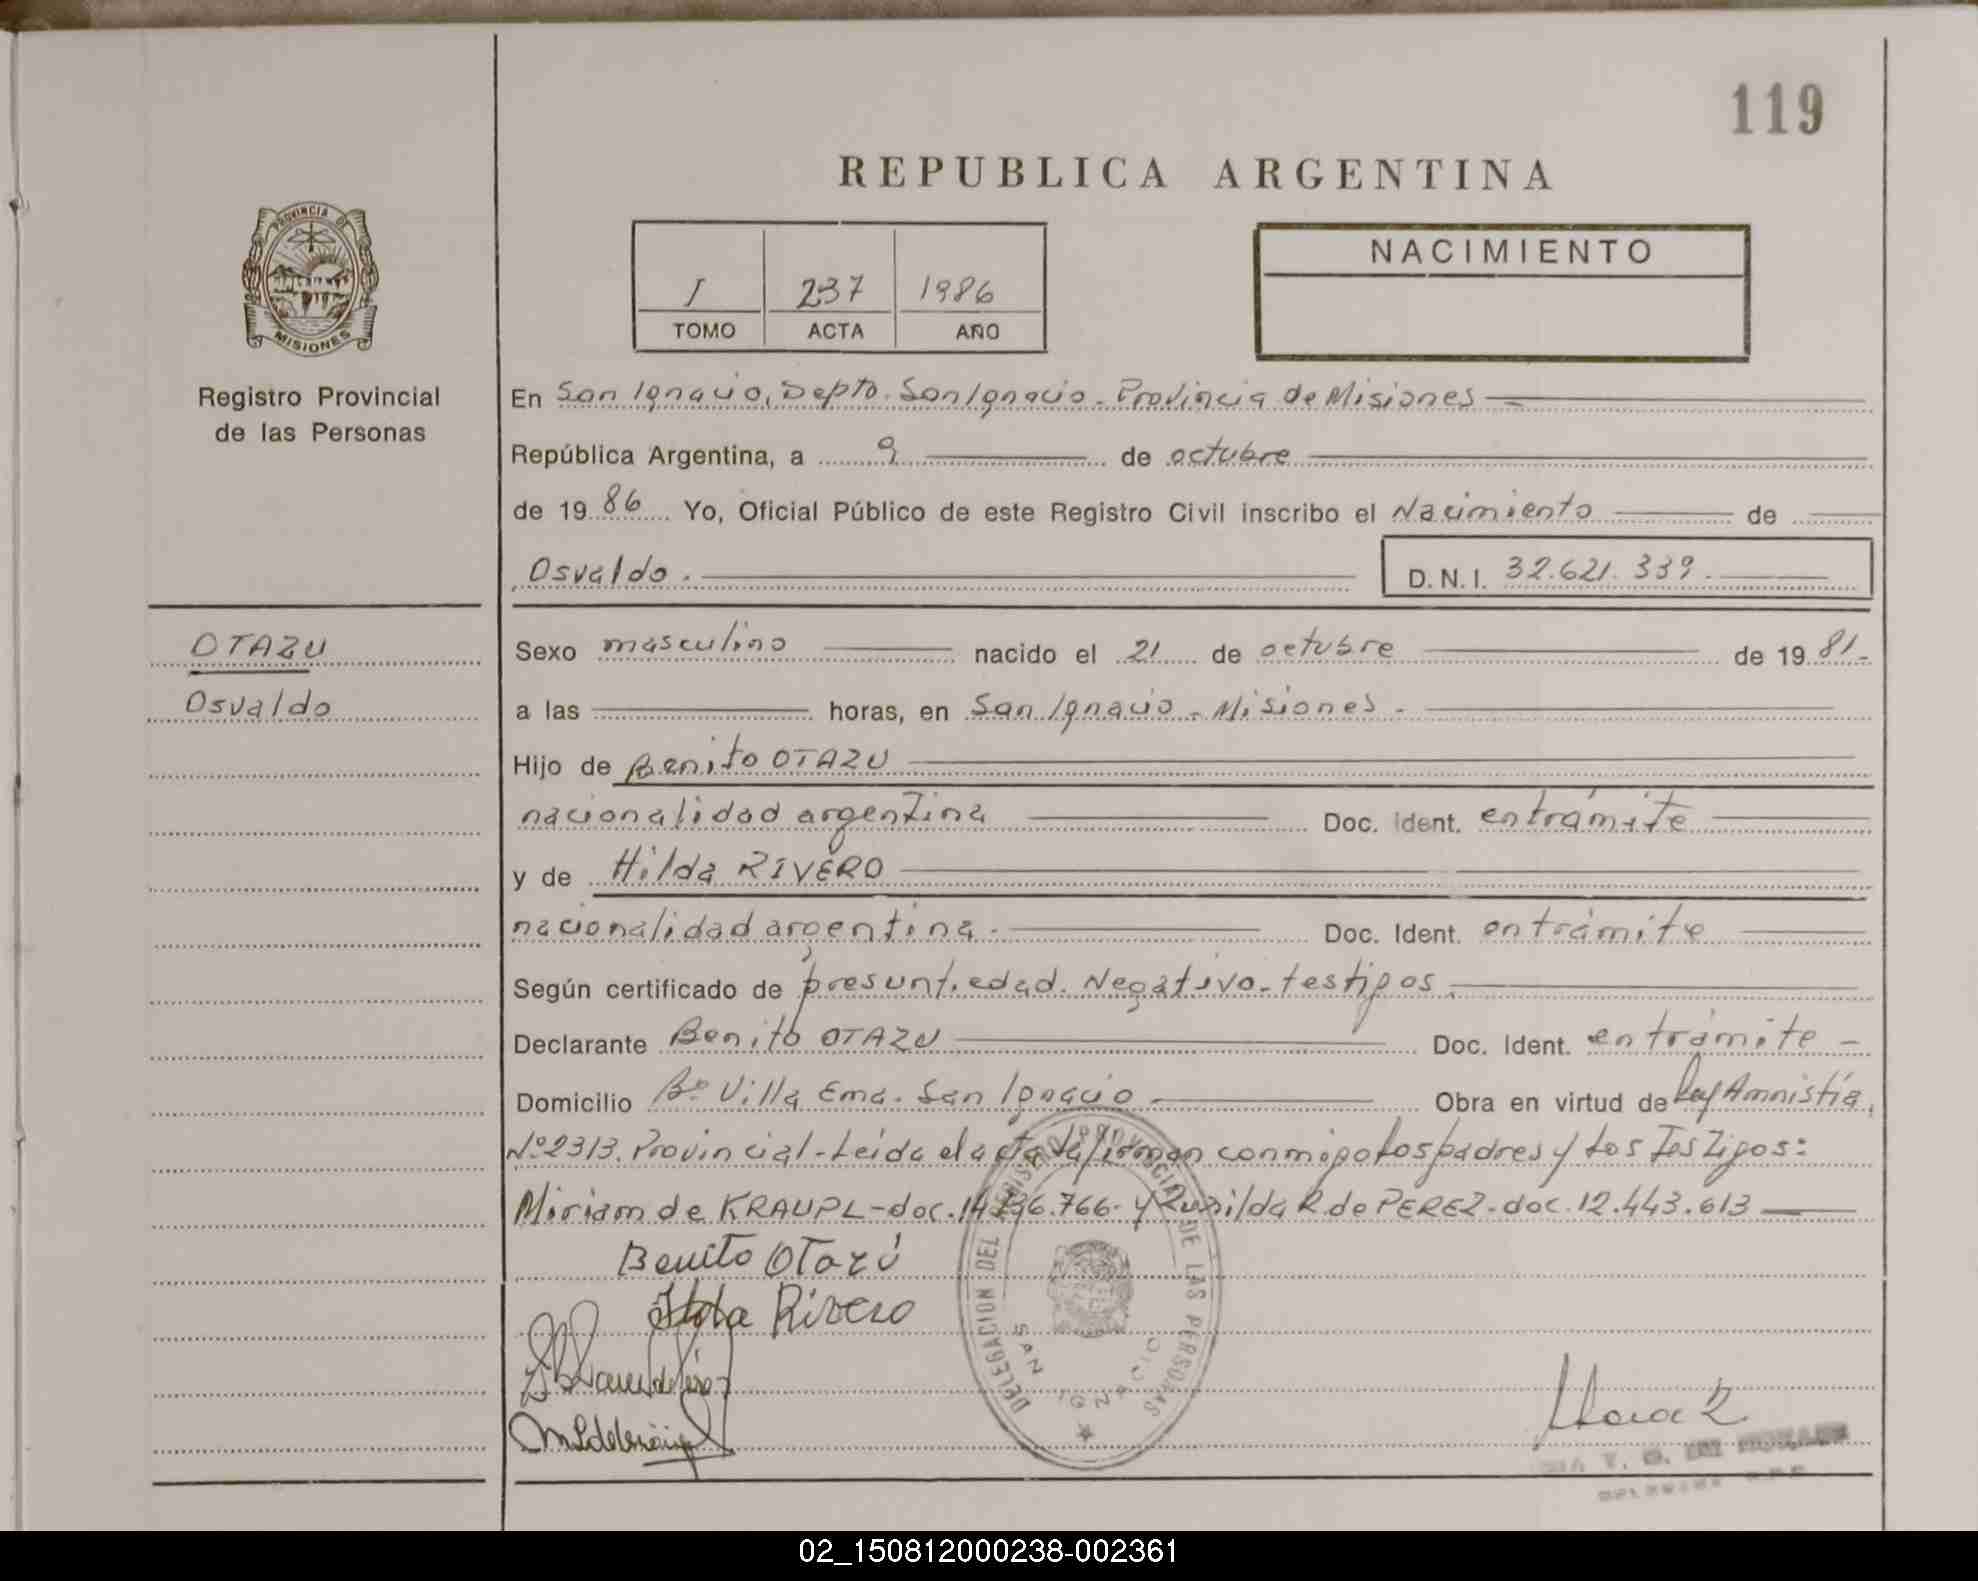 119
REPUBLICA ARGENTINA
PROVINCIA DE
MISIONES
Registro Provincial
de las Personas
I 237 1986
TOMO ACTA AÑO
NACIMIENTO
En San Ignacio, Depto. San Ignacio - Provincia de Misiones
República Argentina, a 9 de octubre
de 1986 Yo, Oficial Público de este Registro Civil inscribo el Nacimiento de
Osvaldo. D.N.I. 32.621.339.
OTAZU
Osvaldo
Sexo masculino nacido el 21 de octubre de 1981-
a las horas, en San Ignacio - Misiones -
Hijo de Benito OTAZU
nacionalidad argentina Doc. Ident. en trámite
y de Hilda RIVERO
nacionalidad argentina. Doc. Ident. en trámite
Según certificado de presunt. edad. Negativo - testigos.
Declarante Benito OTAZU Doc. Ident. en trámite -
Domicilio Bº Villa Ema. San Ignacio - Obra en virtud de Ley Amnistía,
Nº 2313. Provincial - Leída el acta la firman conmigo los padres y los Testigos:
Miriam de KRAUPL - doc. 766. y R. de PEREZ - doc. 12.443.613
Benito OTazú
Ilda Rivero
DELEGACION DEL REGISTRO PROVINCIAL DE LAS PERSONAS
SAN IGNACIO
02_150812000238-002361